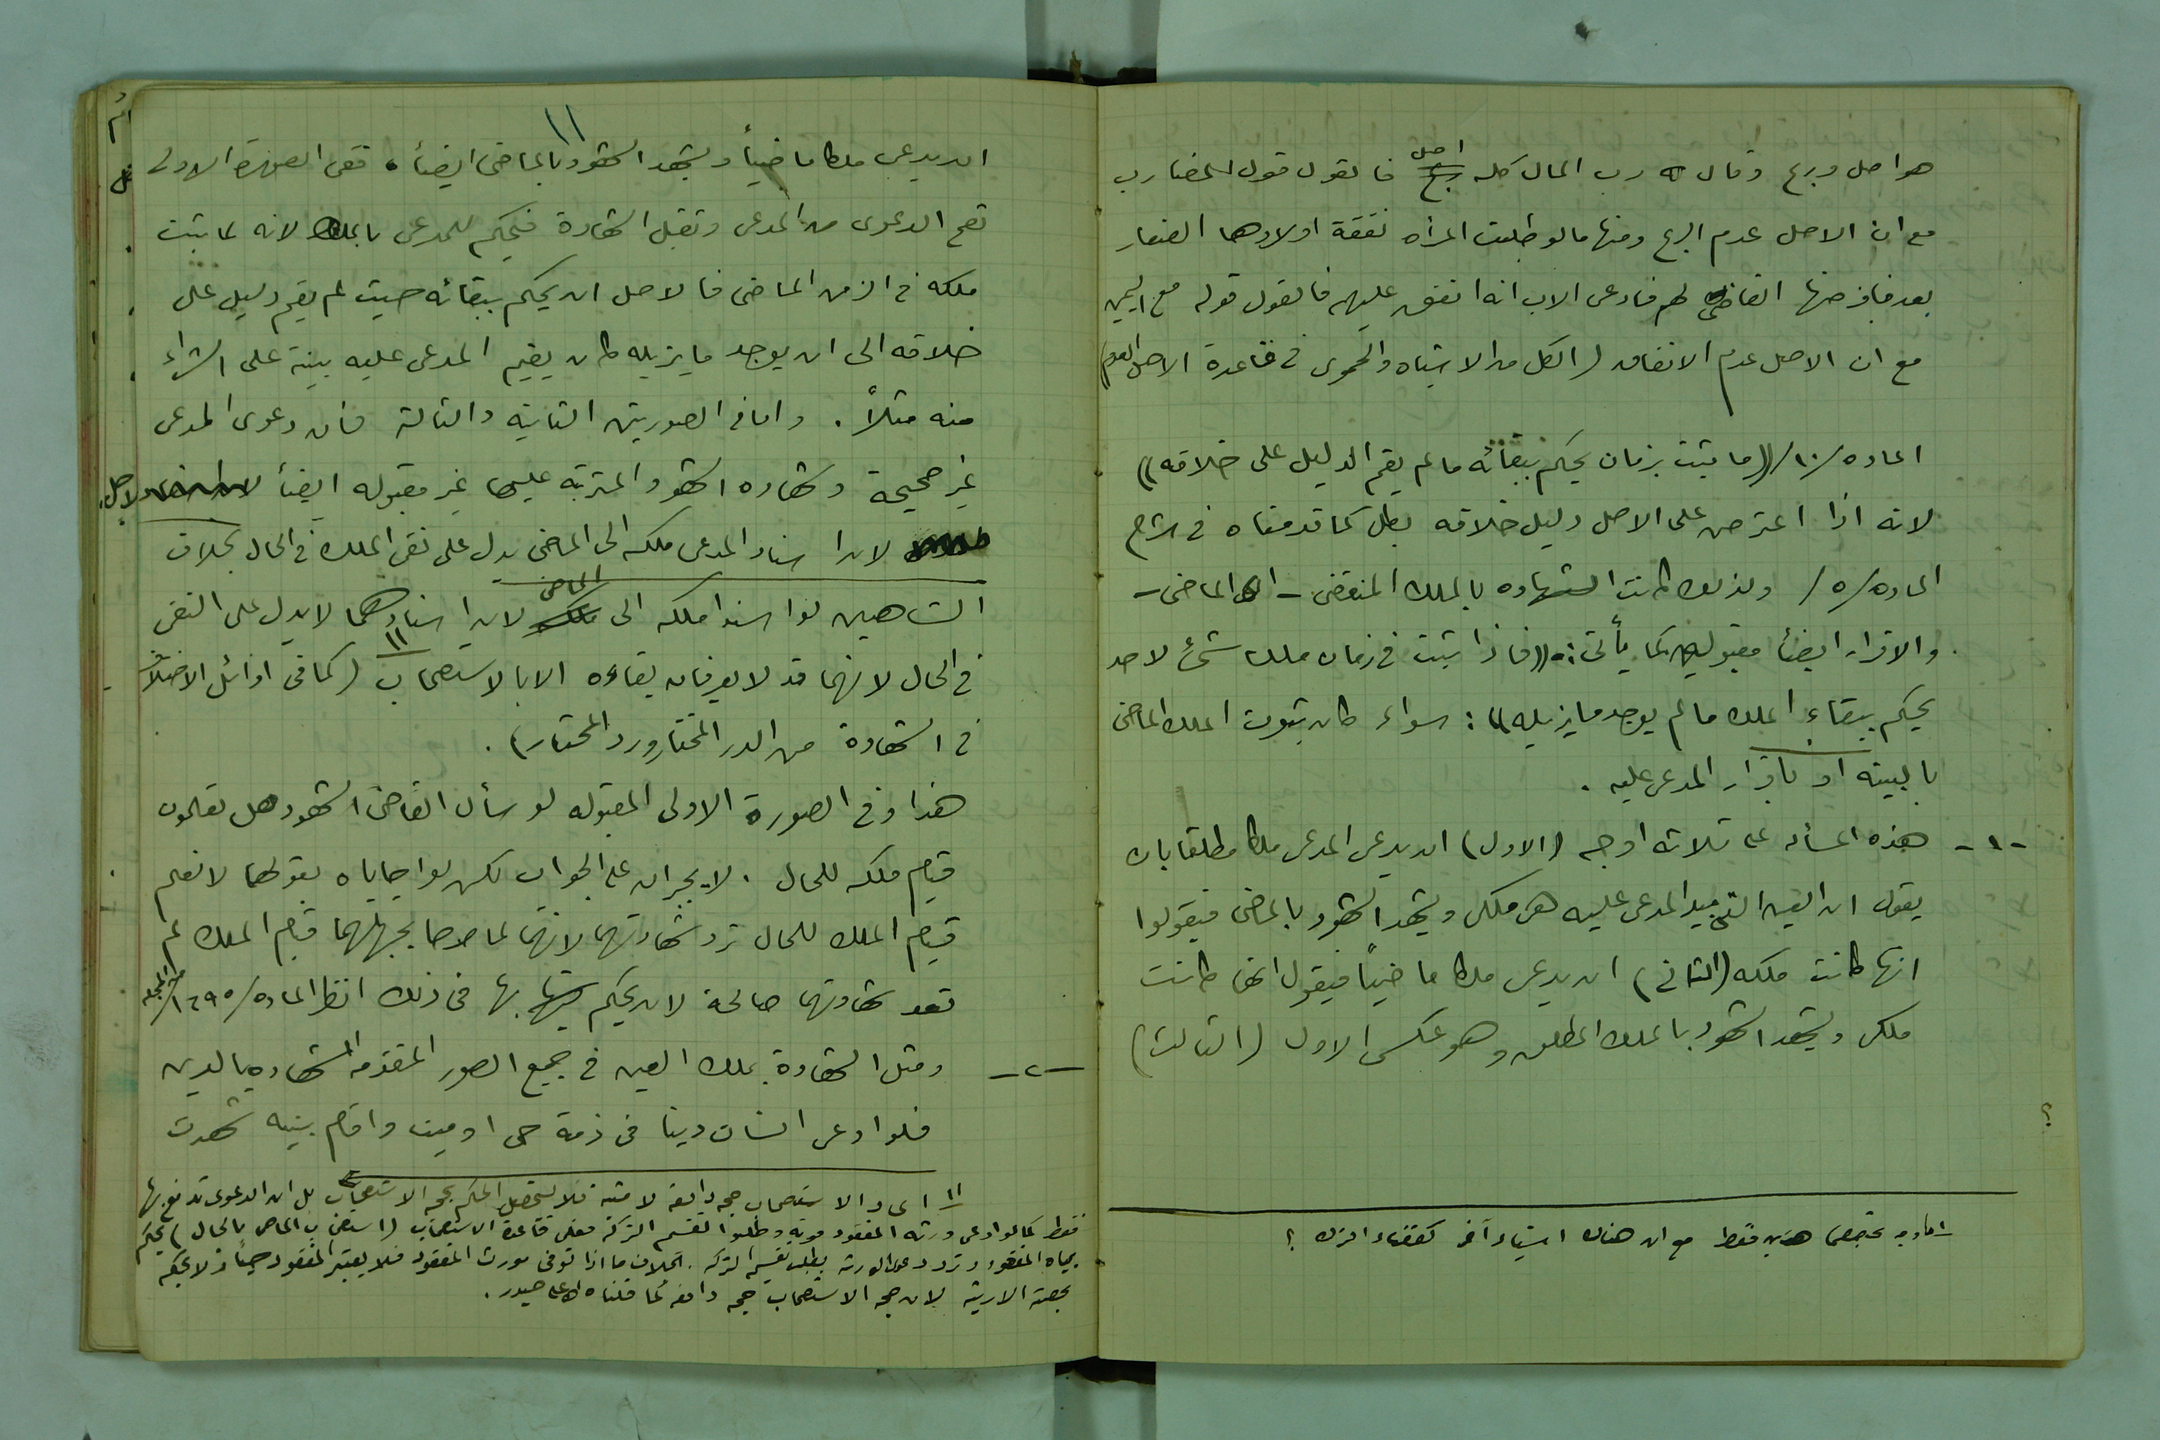 هو اصل وربح وقال له رب المال كله اصل فالقول قول المضارب
مع ان الاصل عدم الربح ومنها ما لو طلبت المرأه نفقة اولادها الصغار
بعد ما فرضها القاضي لهم فادعى الاب انه انفق عليهم فالقول قوله مع اليمين
مع ان الاصل عدم الانفاق (الكل من الاشباه والحموى في قاعدة الاصل العدم)
الماده /١٠/ ((ما يثبت بزمان يحكم ببقائه ما لم يقم الدليل على خلافه))
لانه اذا اعترض على الاصل دليل خلافه بطل كما قدمناه في شرح
الماده /٥/ ولذلك كانت الشهاده بالملك المنقضى - اى الماضى -
والاقرار ايضاً مقبوله كما يأتى: ((فاذا ثبت في زمان ملك شئ لاحد
يحكم ببقاء الملك ما لم يوجد ما يزيله)): سواء كان ثبوت الملك الماضى
بالبينه او باقرار المدعى عليه .
-١- هذه المسأله على ثلاثه اوجه (الاول) ان يدعى المدعى ملكا مطلقا بان
يقول ان العين التى بيد المدعى عليه هى ملكى ويشهد الشهود بالماضى فيقولوا
انها كانت ملكه (الثانى) ان يدعى ملكا ماضياً فيقول انها كانت
ملكى ويشهد الشهود بالملك المطلق وهو عكس الاول (الثالث)
؟
هذين فقط مع ان هناك اشياء آخر كقضاء الترك ؟
١١
ان يدعى ملكا ماضياً ويشهد الشهود بالماضى ايضاً . ففى الصورة الاولى
تصح الدعوى من المدعى وتقبل الشهادة فيحكم للمدعى بالملك لانه لما ثبت
ملكه في الزمن الماضى فالاصل ان يحكم ببقائه حيث لم يقم دليل على
خلافه الى ان يوجد ما يزيله كان يقيم المدعى عليه بينة على الشراء
منه مثلاً . واما فى الصورتين الثانيه والثالثة فان دعوى المدعى
غير صحيحة وشهاده الشهود المترتبة عليها غير مقبوله ايضاً
لان اسناد المدعى ملكه الى الماضى يدل على نفى الملك في الحال بخلاف
الشاهدين لو اسندا ملكه الى الماضى لان اسنادهما لا يدل على النفى
في الحال لانهما قد لا يعرفان بقاءه الا بالاستصحاب (١) (كما فى اوائل الاختلاف
في الشهادة من الدر المختار ورد المحتار) .
هذا وفى الصورة الاولى المقبوله لو سأل القاضى الشهود هل تعلمون
قيام ملكه للحال . لا يجبران على الجواب لكن لو اجاباه بقولهما لا نعلم
قيام الملك للحال ترد شهادتهما لانهما لما صرحا بجهلهما قيام الملك لم
تعد شهادتهما صالحة لان يحكم بها فى ذلك انظر الماده /١٦٩٥/ من المجله
-٢- ومثل الشهادة بملك العين في جميع الصور المتقدمه الشهاده بالدين
فلو ادعى انسان دينا فى ذمة حى او ميت واقام بينه شهدت
(١) اى والاستصحاب حجه دافعه لا مثبته فلا يستحصل الحكم بحجه الاستصحاب بل ان الدعوى تدفع بها
فقط كما لو ادعى ورثه المفقود موته وطلبوا تقسيم التركه فعلى قاعدة الاستصحاب (استصحاب الماضى بالحال) يحكم
بحياه المفقود وترد دعوى الورثه بطلب تقسيم التركه . بخلاف ما اذا توفى مورث المفقود فلا يعتبر المفقود حياً ولا يحكم
بحصته الارثيه لان حجه الاستصحاب حجه دافعه كما قلناه على حيدر .